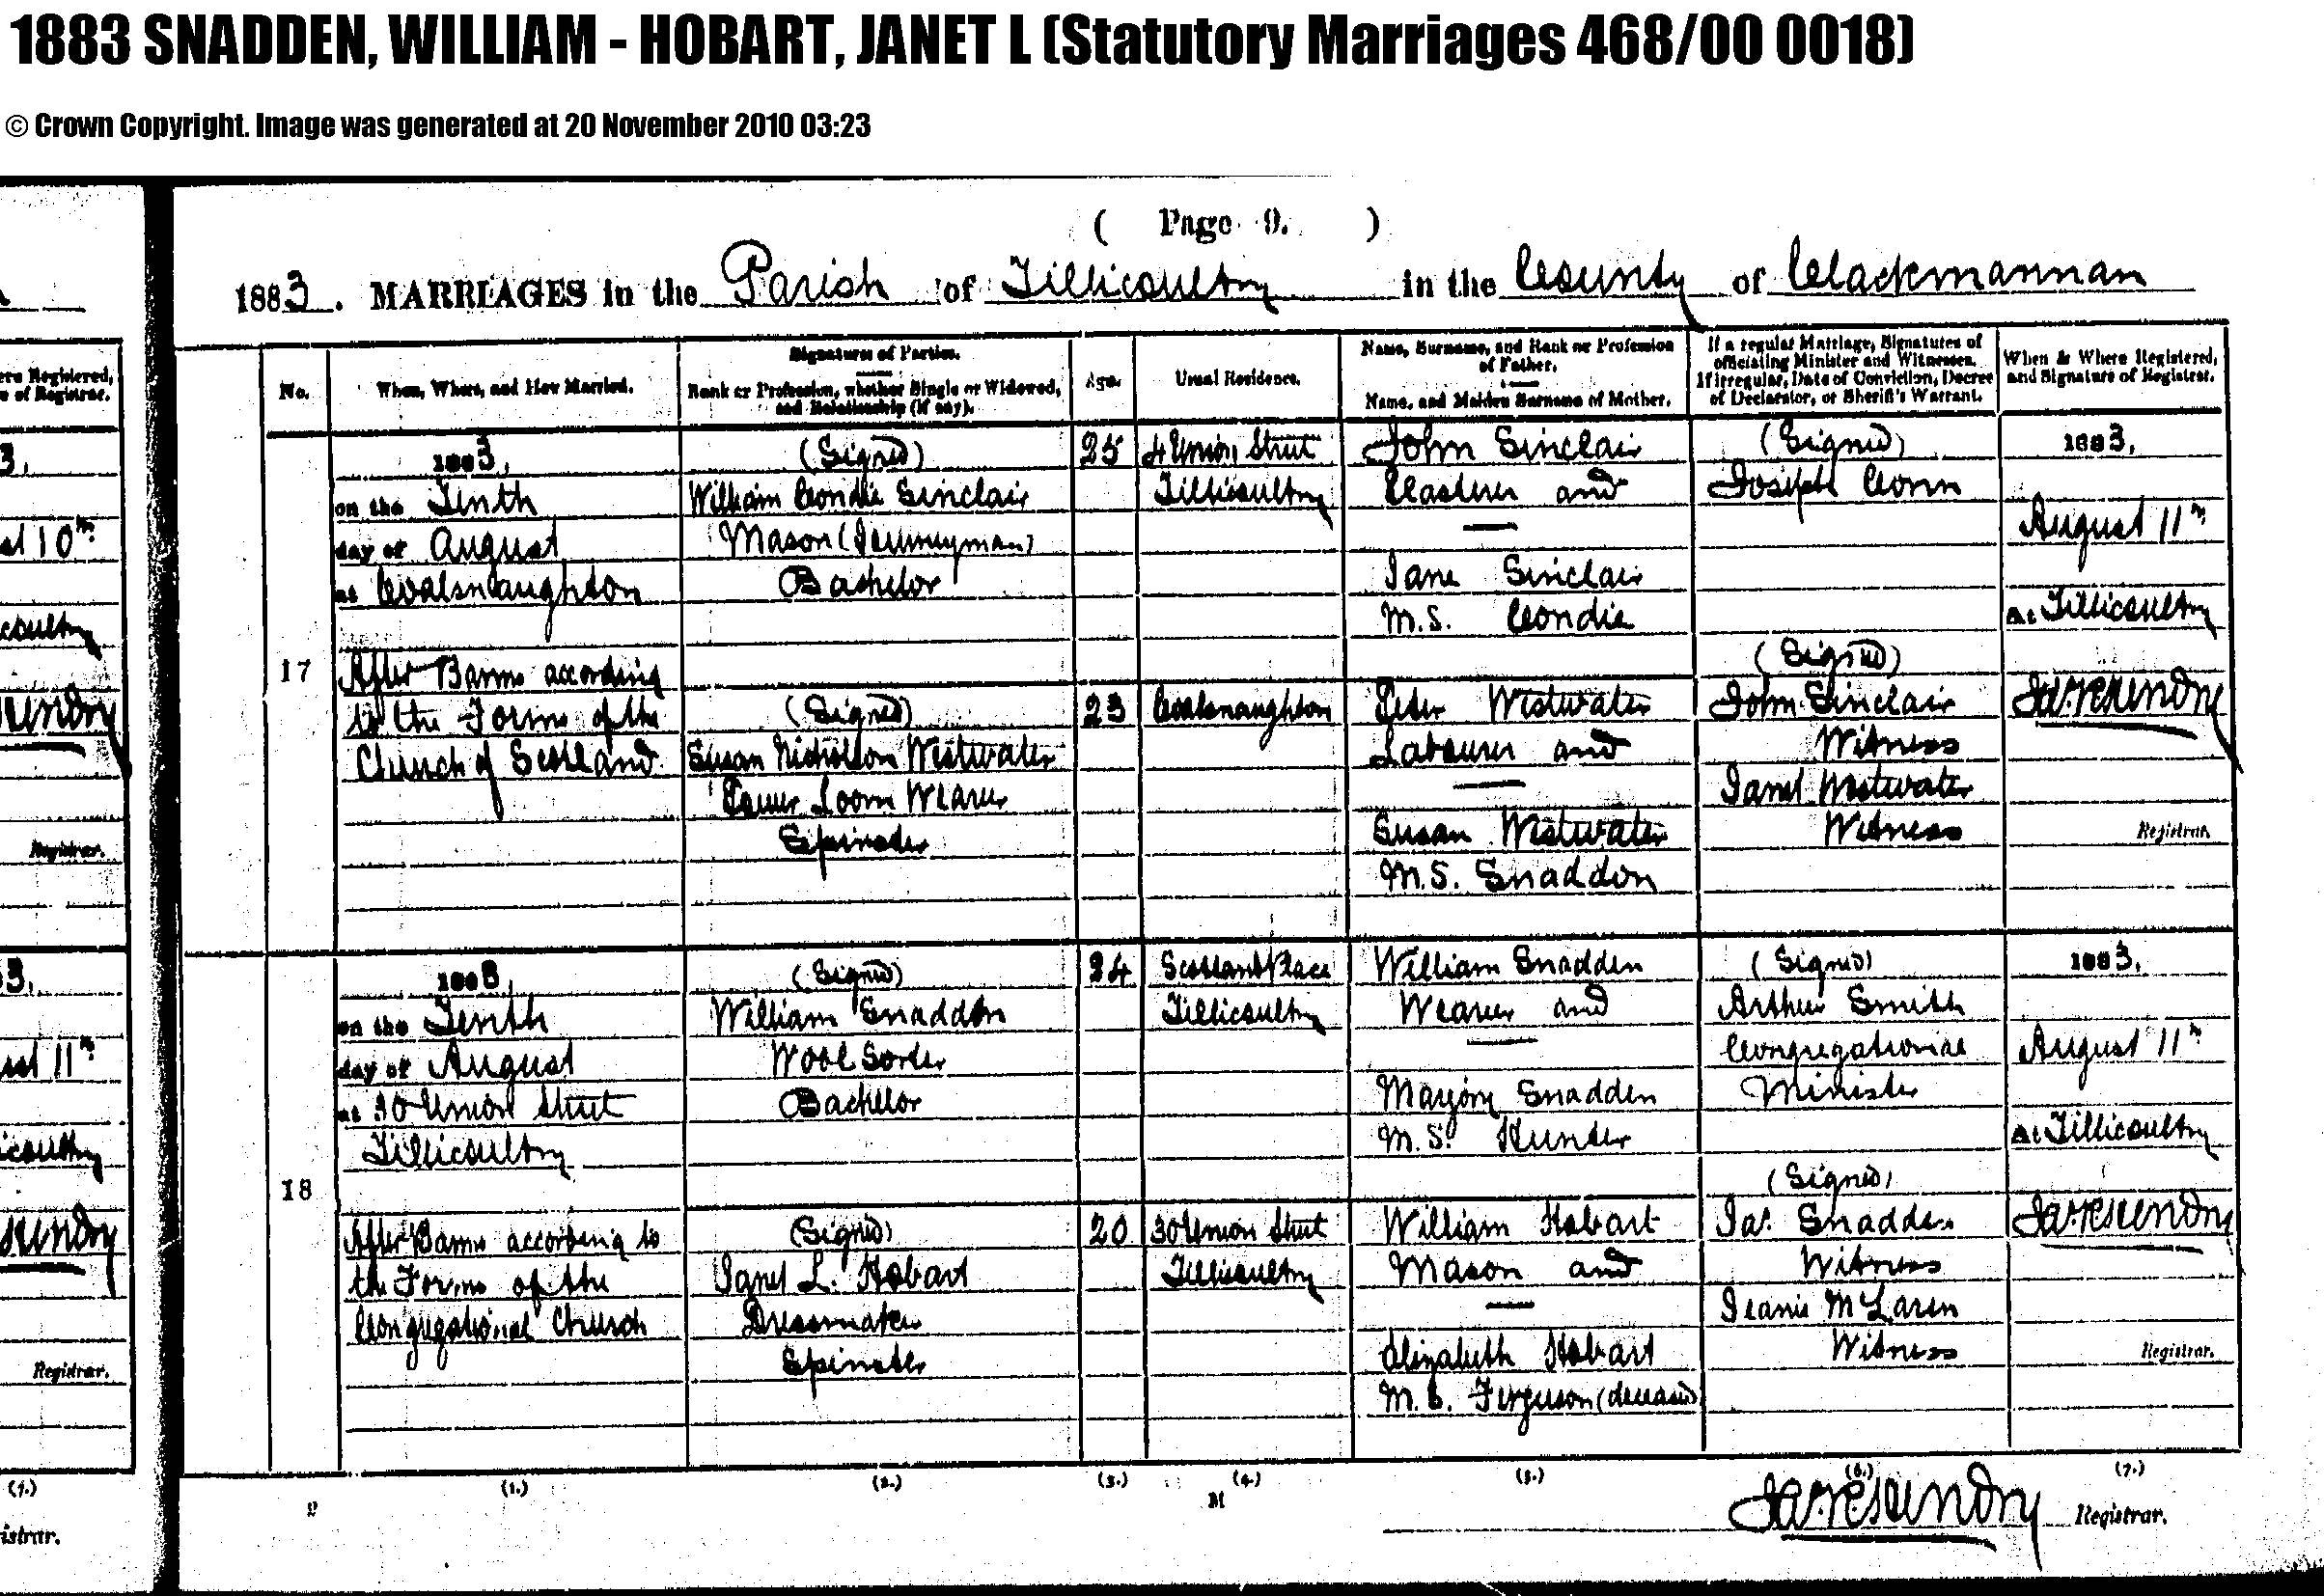 1883 SNADDEN, WILLIAM - HOBART, JANET L (Statutory Marriages 468/00 0018)
© Crown Copyright. Image was generated at 20 November 2010 03:23
( Page 9. )
1883. MARRIAGES in the Parish of Tillicoultry in the County of Clackmannan
No.
When, Where, and How Married.
Signatures of Parties.
Rank or Profession, whether Single or Widowed,
and Relationship (if any).
Age.
Usual Residence.
Name, Surname, and Rank or Profession
of Father.
Name, and Maiden Surname of Mother.
If a regular Marriage, Signatures of
officiating Minister and Witnesses.
If irregular, Date of Conviction, Decree
of Declarator, or Sheriff's Warrant.
When & Where Registered,
and Signature of Registrar.
17
1883,
on the Tenth
day of August
at Coalsnaughton
After Banns according
to the Forms of the
Church of Scotland
(Signed)
William Condie Sinclair
Mason (Journeyman)
Bachelor
(Signed)
Susan Nicholson Westwater
Power Loom Weaver
Spinster
25
23
4 Union Street
Tillicoultry
Coalsnaughton
John Sinclair
and
Jane Sinclair
M.S. Condie
Peter Westwater
Labourer and
Susan Westwater
M.S. Snaddon
(Signed)
Joseph Conn
(Signed)
John Sinclair
Witness
Janet Westwater
Witness
1883,
August 11th
At Tillicoultry
Registrar.
18
1883,
on the Tenth
day of August
at 30 Union Street
Tillicoultry
After Banns according to
the Forms of the
Congregational Church
(Signed)
William Snadden
Wool Sorter
Bachelor
(Signed)
Janet L. Hobart
Dressmaker
Spinster
24
20
Scotland Place
Tillicoultry
30 Union Street
Tillicoultry
William Snadden
Weaver and
Marjory Snadden
M.S. Hunter
William Hobart
Mason and
Elizabeth Hobart
M.S. Ferguson (deceased)
(Signed)
Arthur Smith
Congregational
Minister
(Signed)
Jas. Snadden
Witness
Jeanie McLaren
Witness
1883,
August 11th
At Tillicoultry
Registrar.
(1.) (2.) (3.) (4.) (5.) (6.) (7.)
M
Registrar.